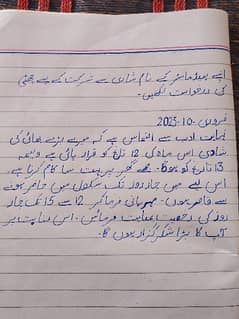 اپنے ہیڈماسٹر کے نام شادی میں شرکت کے لیے چھٹی
کی درخواست لکھیں۔
فروری -10-2025
نہایت ادب سے التماس ہے کہ میرے بڑے بھائی کی
شادی اس ماہ کی 12 تاریخ کو قرار پائی ہے ولیمہ
13 تاریخ کو ہوگا۔ مجھے گھر پر بہت سا کام کرنا ہے۔
اس لیے میں چار روز تک سکول میں حاضر ہونے
سے قاصر ہوں۔ مہربانی فرما کر 12 سے 15 تک چار
روز کی رخصت عنایت فرمائیں۔ اس عنایت پر
آپ کا بڑا شکر گزار ہوں گا۔